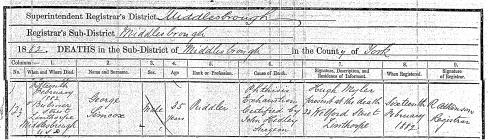 Superintendent Registrar's District Middlesbrough
Registrar's Sub-District Middlesbrough
1882. DEATHS in the Sub-District of Middlesbrough in the County of York
Columns:— 1. 2. 3. 4. 5. 6. 7. 8. 9.
No. When and Where Died. Name and Surname. Sex. Age. Rank or Profession. Cause of Death. Signature, Description, and Residence of Informant. When Registered. Signature of Registrar.
Fifteenth February 1882
Street Linthorpe Middlesbrough U.S.D.
George Simcox
Male
35 years
Puddler
Phthisis Exhaustion Certified by John Hedley Surgeon
Hugh Myler present at the death Street Linthorpe
Sixteenth February 1882
Registrar